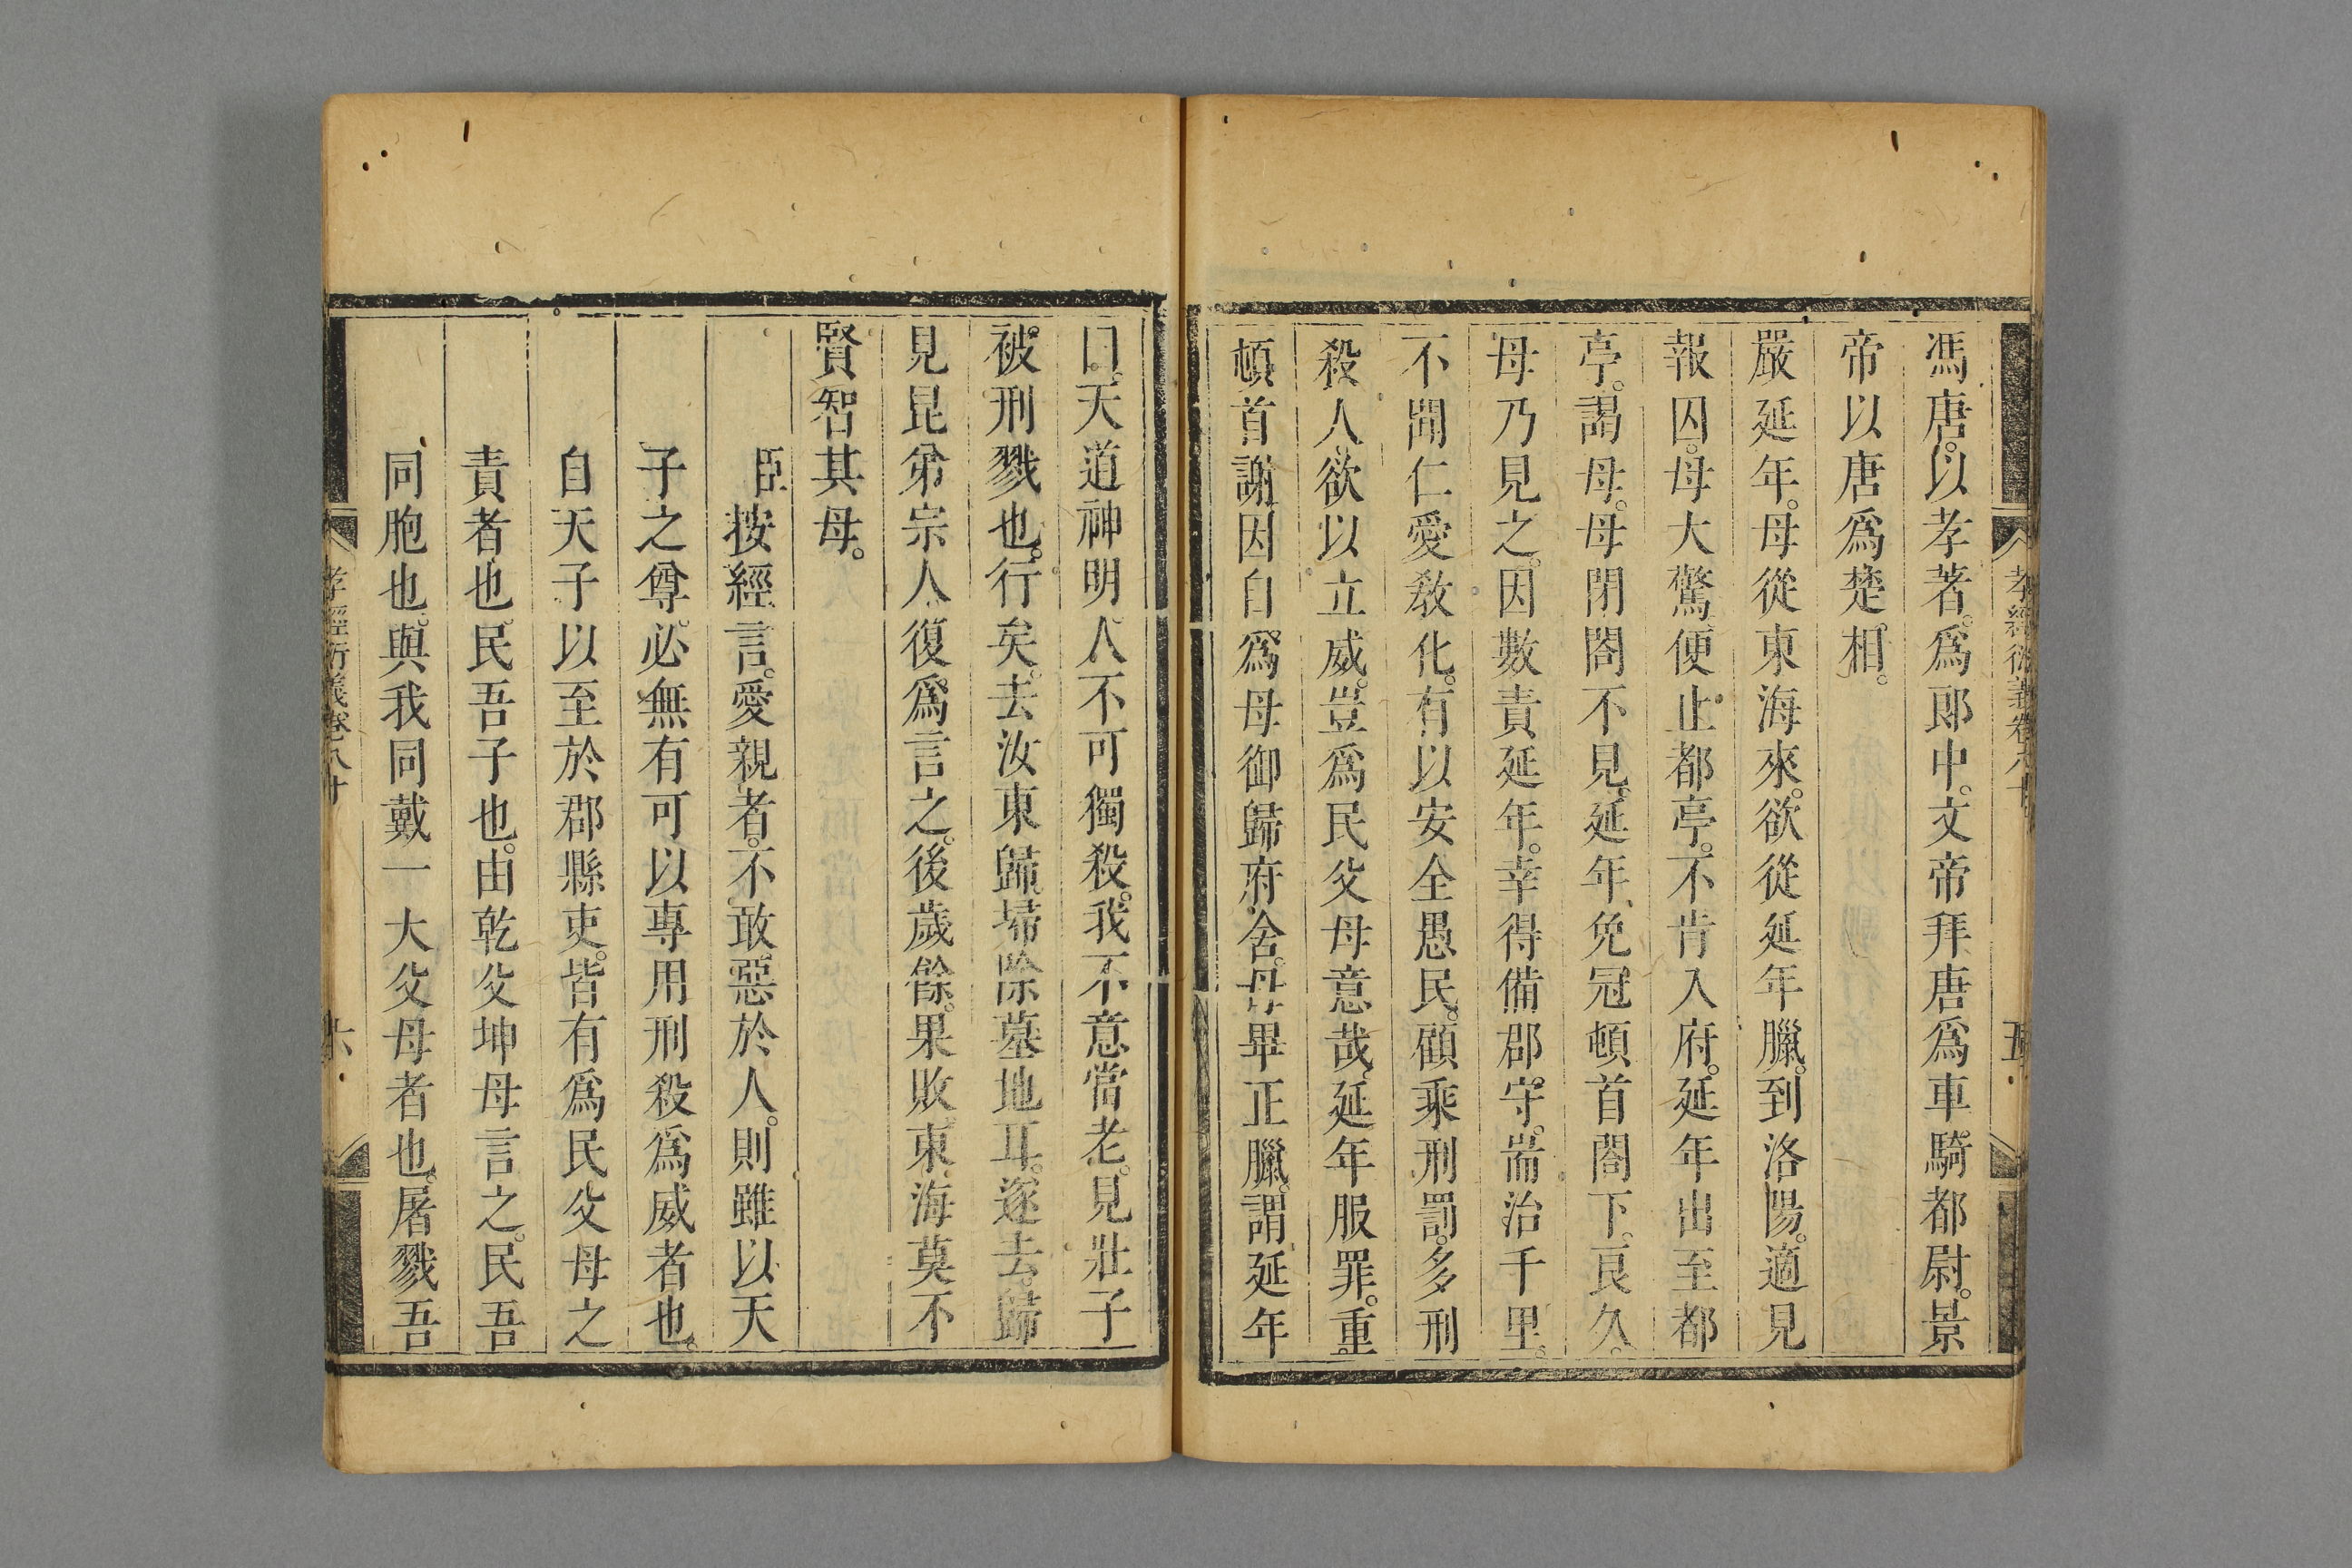 馮唐。以孝著。爲郎中。文帝拜唐爲車騎都尉。景
帝以唐爲楚相。
嚴延年。母從東海來。欲從延年臘。到洛陽。適見
報囚。母大驚。便止都亭。不肯入府。延年出至都
亭。謁母。母閉閤不見。延年免冠頓首閤下。良久。
母乃見之。因數責延年。幸得備郡守。耑治千里。
不聞仁愛敎化。有以安全愚民。顧乘刑罰。多刑
殺人。欲以立威。豈爲民父母意哉。延年服罪。重
頓首謝。因自爲母御歸府舍。母畢正臘。謂延年
曰。天道神明。人不可獨殺。我不意當老。見壯子
被刑戮也。行矣。去汝東歸。埽除墓地耳。遂去。歸
見昆弟宗人。復爲言之。後歲餘。果敗。東海莫不
賢智其母。
臣按經言。愛親者。不敢惡於人。則雖以天
子之尊。必無有可以專用刑殺爲威者也。
自天子以至於郡縣吏。皆有爲民父母之
責者也。民吾子也。由乾父坤母言之。民吾
同胞也。與我同戴一大父母者也。屠戮吾
孝經衍義卷八十
五
孝經衍義卷八十
六